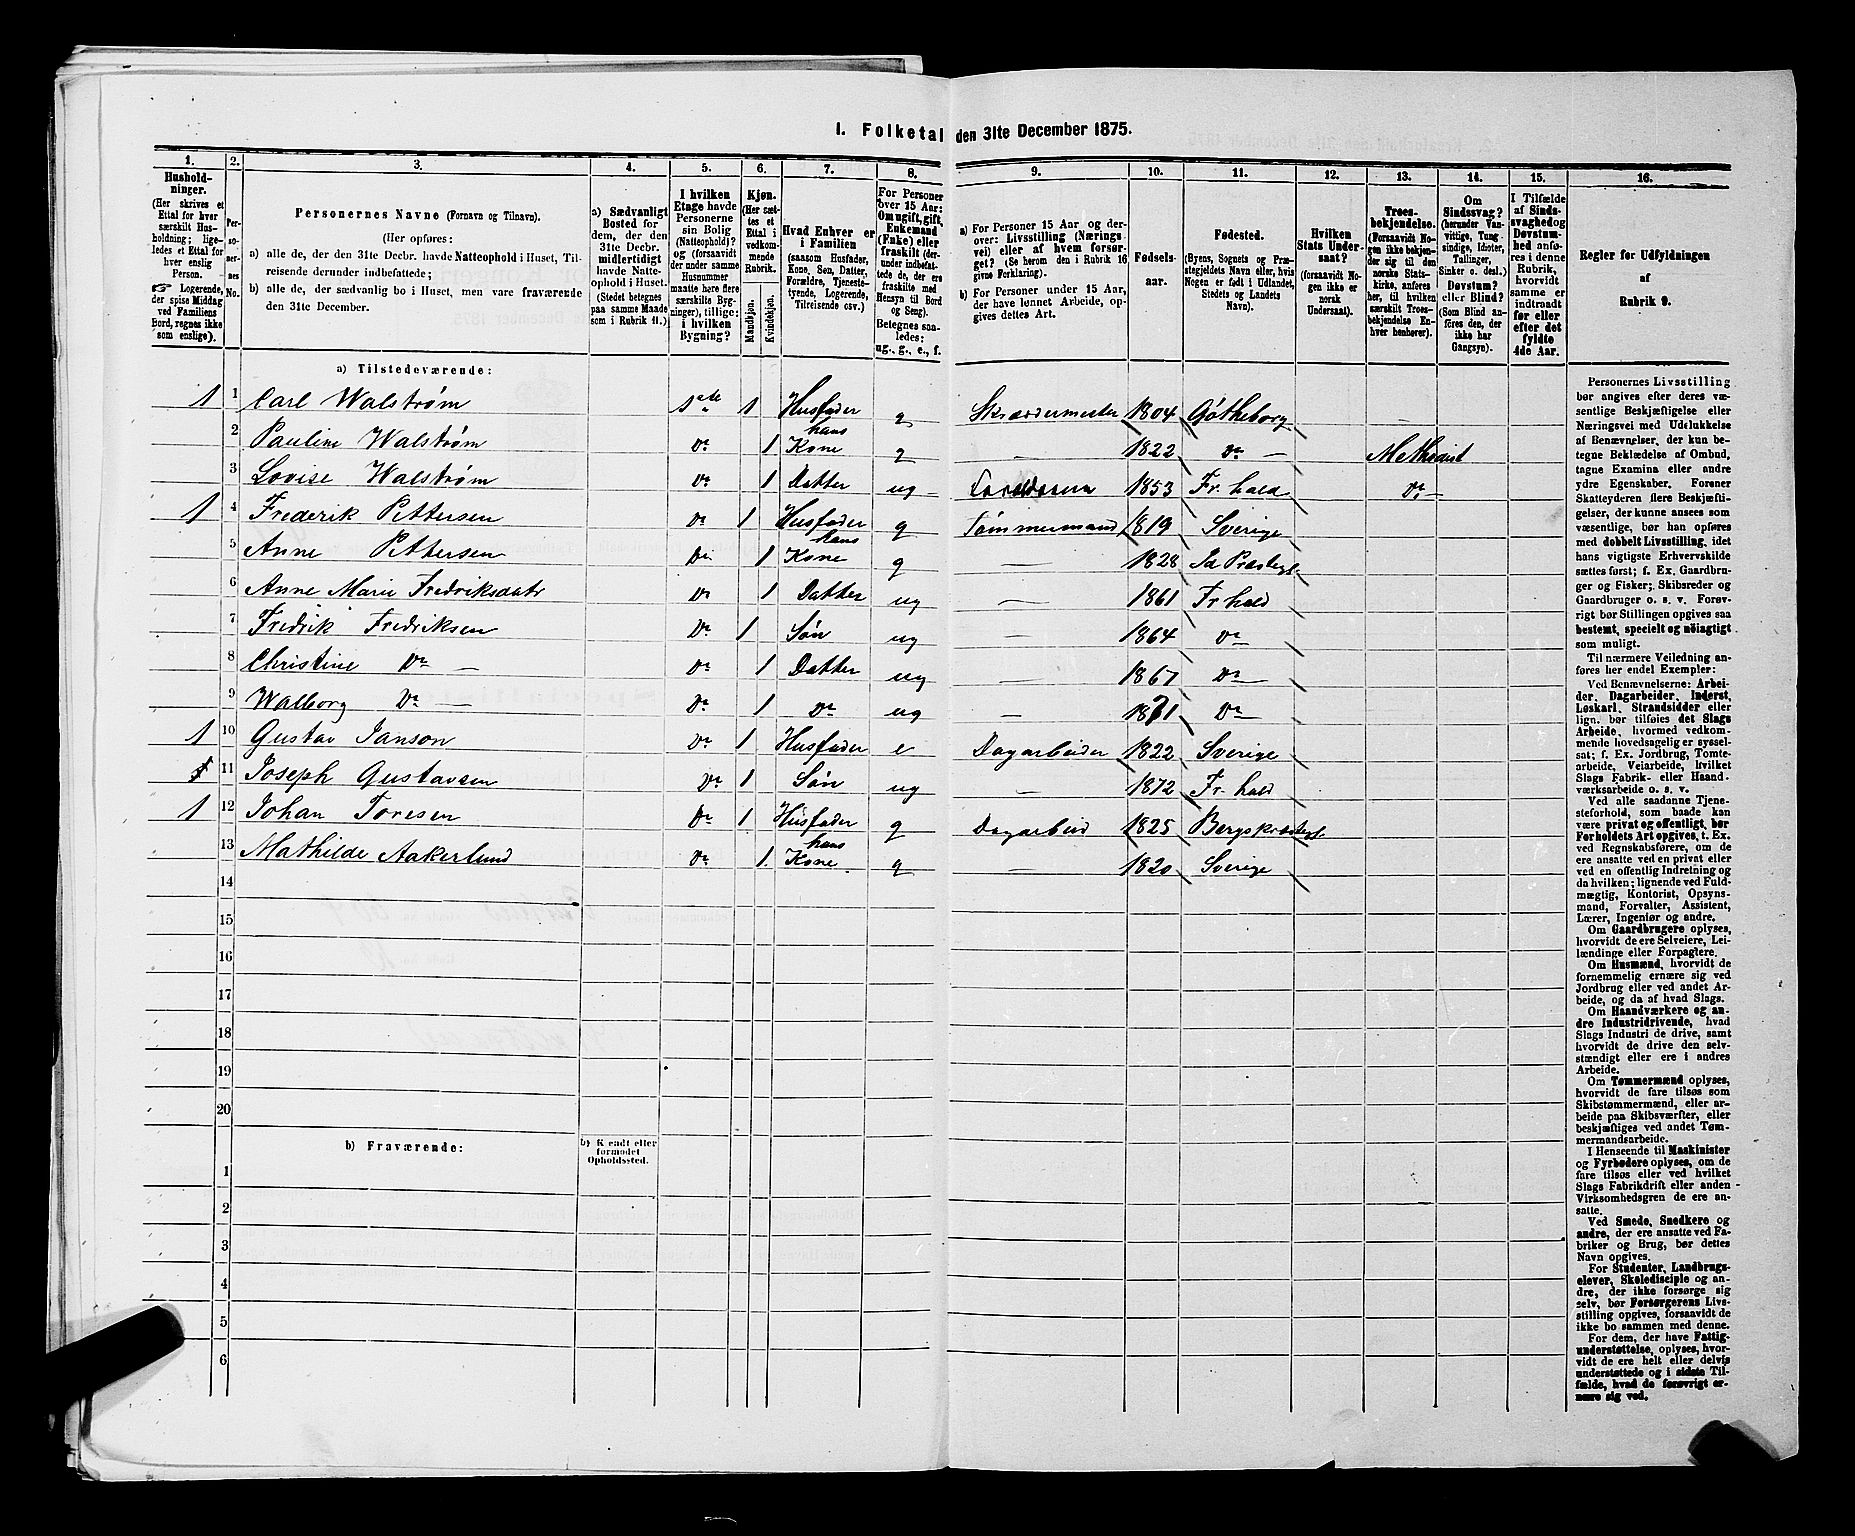 1. Folketal den 31te December 1875.
1. 2. 3. 4. 5. 6. 7. 8. 9. 10. 11. 12. 13. 14. 15. 16.
Hushold-
ninger.
(Her skrives et
Ettal for hver
særskilt Hus-
holdning; lige-
ledes et Ettal for
hver enslig
Person.
☞ Logerende,
der spise Middag
ved Familiens
Bord, regnes ikke
som enslige).
Per-
so-
ner-
nes
No.
Personernes Navne (Fornavn og Tilnavn).
(Her opføres:
a) alle de, der den 31te Decbr. havde Natteophold i Huset, Til-
reisende derunder indbefattede;
b) alle de, der sædvanlig bo i Huset, men vare fraværende
den 31te December.
a) Sædvanligt
Bosted for
dem, der den
31te Decbr.
midlertidigt
havde Natte-
ophold i Huset.
(Stedet betegnes
paa samme Maade
som i Rubrik 11.)
I hvilken
Etage havde
Personerne
sin Bolig
(Natteophold)?
og (forsaavidt
der under samme
Husnummer
maatte høre flere
særskilte Byg-
ninger), tillige:
i hvilken
Bygning?
Kjøn.
(Her sæt-
tes et
Ettal i
vedkom-
mende
Rubrik.
Mandkjøn.
Kvindekjøn.
Hvad Enhver er
i Familien
(saasom Husfader,
Kone, Søn, Datter,
Forældre, Tjeneste-
tyende, Logerende,
Tilreisende osv.)
For Personer
over 15 Aar:
Om ugift, gift,
Enkemand
(Enke) eller
fraskilt (der-
under indbefat-
tede de, der ere
fraskilte med
Hensyn til Bord
og Seng).
Betegnes saa-
ledes:
ug., g., e., f.
a) For Personer 15 Aar og der-
over: Livsstilling (Nærings-
vei) eller af hvem forsør-
get? (Se herom den i Rubrik 16
givne Forklaring).
b) For Personer under 15 Aar,
der have lønnet Arbeide, op-
gives dettes Art.
Fødsels-
aar.
Fødested.
(Byens, Sognets og Præ-
stegjeldets Navn eller, hvis
Nogen er født i Udlandet,
Stedets og Landets
Navn).
Hvilken
Stats Under-
saat?
(forsaavidt No-
gen ikke er
norsk
Undersaat).
Troes-
bekjendelse.
(Forsaavidt No-
gen ikke bekjen-
der sig til den
norske Stats-
kirke, anføres
her, til hvilken
særskilt Troes-
bekjendelse En-
hver henhører).
Om
Sindssvag?
(herunder Van-
vittige, Tung-
sindige, Idioter,
Tullinger,
Sinker o. desl.)
Døvstum?
eller Blind?
(Som Blind an-
føres den, der
ikke har
Gangsyn).
I Tilfælde
af Sinds-
svaghed og
Døvstum-
hed anfø-
res i denne
Rubrik,
hvorvidt
samme er
indtraadt
før eller
efter det
fyldte
4de Aar.
Regler for Udfyldningen
af
Rubrik 9.
a) Tilstedeværende:
1 1 Carl Walstrøm 1 Husfader g Skræddermester 1804 Gøtheborg
2 Pauline Walstrøm Do 1 hans Kone g — 1822 Do — Methodist
3 Lovise Walstrøm Do 1 Datter ug — 1853 Fr. hald Do —
1 4 Frederik Pettersen Do 1 Husfader g Tømmermand 1819 Sverige
5 Anne Pettersen Do 1 hans Kone g — 1828 Id Præstegl
6 Anne Marie Fredriksdatr Do 1 Datter ug — 1861 Fr hald
7 Fredrik Fredriksen Do 1 Søn ug — 1864 Do
8 Christine Do — Do 1 Datter ug — 1867 Do
9 Walborg Do — Do 1 Do ug — 1871 Do
1 10 Gustav Janson Do 1 Husfader e Dagarbeider 1822 Sverige
11 Joseph Gustavsen Do 1 Søn ug — 1872 Fr. hald
1 12 Johan Toresen Do 1 Husfader g Dagarbeid 1825
13 Mathilde Aakerlund Do 1 hans Kone g — 1820 Sverige
14
15
16
17
18
19
20
b) Fraværende:
b) Kjendt eller
formodet
Opholdssted.
1
2
3
4
5
6
Personernes Livsstilling
bør angives efter deres væ-
sentlige Beskjæftigelse eller
Næringsvei med Udelukkelse
af Benævnelser, der kun be-
tegne Beklædelse af Ombud,
tagne Examina eller andre
ydre Egenskaber. Forener
Skatteyderen flere Beskjæfti-
gelser, der kunne ansees som
væsentlige, bør han opføres
med dobbelt Livsstilling, idet
hans vigtigste Erhvervskilde
sættes først; f. Ex. Gaardbru-
ger og Fisker; Skibsreder og
Gaardbruger o. s. v. Forøv-
rigt bør Stillingen opgives saa
bestemt, specielt og nøiagtigt
som muligt.
Til nærmere Veiledning an-
føres her endel Exempler:
Ved Benævnelserne: Arbei-
der, Dagarbeider, Inderst,
Løskarl, Strandsidder eller
lign. bør tilføies det Slags
Arbeide, hvormed vedkom-
mende hovedsagelig er syssel-
sat; f. Ex. Jordbrug, Tomte-
arbeide, Veiarbeide, hvilket
Slags Fabrik- eller Haand-
værksarbeide o. s. v.
Ved alle saadanne Tjene-
steforhold, som baade kan
være privat og offentligt, bør
Forholdets Art opgives, t. Ex.
ved Regnskabsførere, om de
ere ansatte ved en privat eller
ved en offentlig Indretning og
da hvilken; lignende ved Fuld-
mægtig, Kontorist, Opsyns-
mand, Forvalter, Assistent,
Lærer, Ingeniør og andre.
Om Gaardbrugere oplyses,
hvorvidt de ere Selveiere, Lei-
lændinge eller Forpagtere.
Om Husmænd, hvorvidt de
fornemmelig ernære sig ved
Jordbrug eller ved andet Ar-
beide, og da af hvad Slags.
Om Haandværkere og an-
dre Industridrivende, hvad
Slags Industri de drive, samt
hvorvidt de drive den selv-
stændigt eller ere i andres
Arbeide.
Om Tømmermænd oplyses,
hvorvidt de fare tilsøs som
Skibstømmermænd, eller ar-
beide paa Skibsværfter, eller
beskjæftiges ved andet Tøm-
mermandsarbeide.
I Henseende til Maskinister
og Fyrbødere oplyses, om de
fare tilsøs eller ved hvilket
Slags Fabrikdrift eller anden
Virksomhedsgren de ere an-
satte.
Ved Smede, Snedkere og
andre, der ere ansatte ved Fa-
briker og Brug, bør dettes
Navn opgives.
For Studenter, Landbrugs-
elever, Skoledisciple og an-
dre, der ikke forsørge sig
selv, bør Forsørgerens Livs-
stilling opgives, forsaavidt de
ikke bo sammen med denne.
For dem, der have Fattig-
understøttelse, oplyses, hvor-
vidt de ere helt eller delvis
understøttede og i sidste Til-
fælde, hvad de forøvrigt er-
nære sig ved.